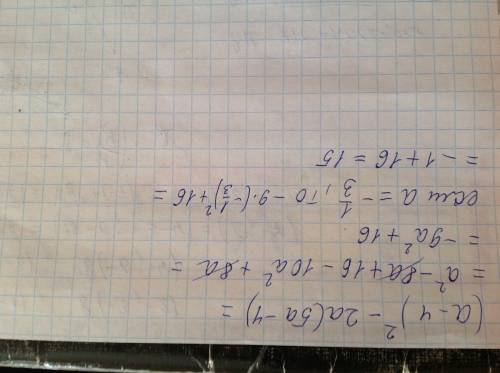 (a-4)² - 2a(5a-4) =
= a² - 8a + 16 - 10a² + 8a =
= -9a² + 16
если a = -1/3, то -9·(-1/3)² + 16 =
= -1 + 16 = 15